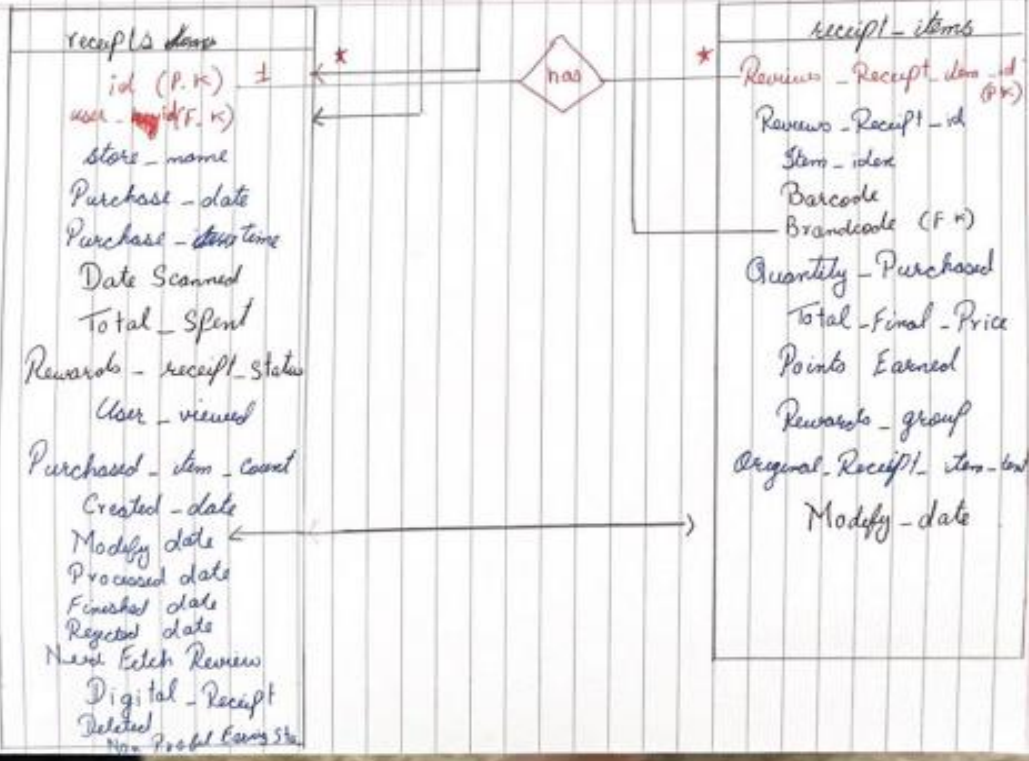 receipts
id (P.K) 1
user_ id (F.K)
store_name
Purchase_date
Purchase_ time
Date Scanned
Total_Spent
Rewards_receipt_status
User_viewed
Purchased_item_count
Created_date
Modify date
Processed date
Finished date
Rejected date
Need Fetch Review
Digital_Receipt
Deleted
Non
*
has
*
receipt_items
Reviews_Receipt_item_id
(P.K)
Reviews_Receipt_id
Item_idex
Barcode
Brandcode (F K)
Quantity_Purchased
Total_Final_Price
Points Earned
Rewards_group
Original_Receipt_item_
Modify_date